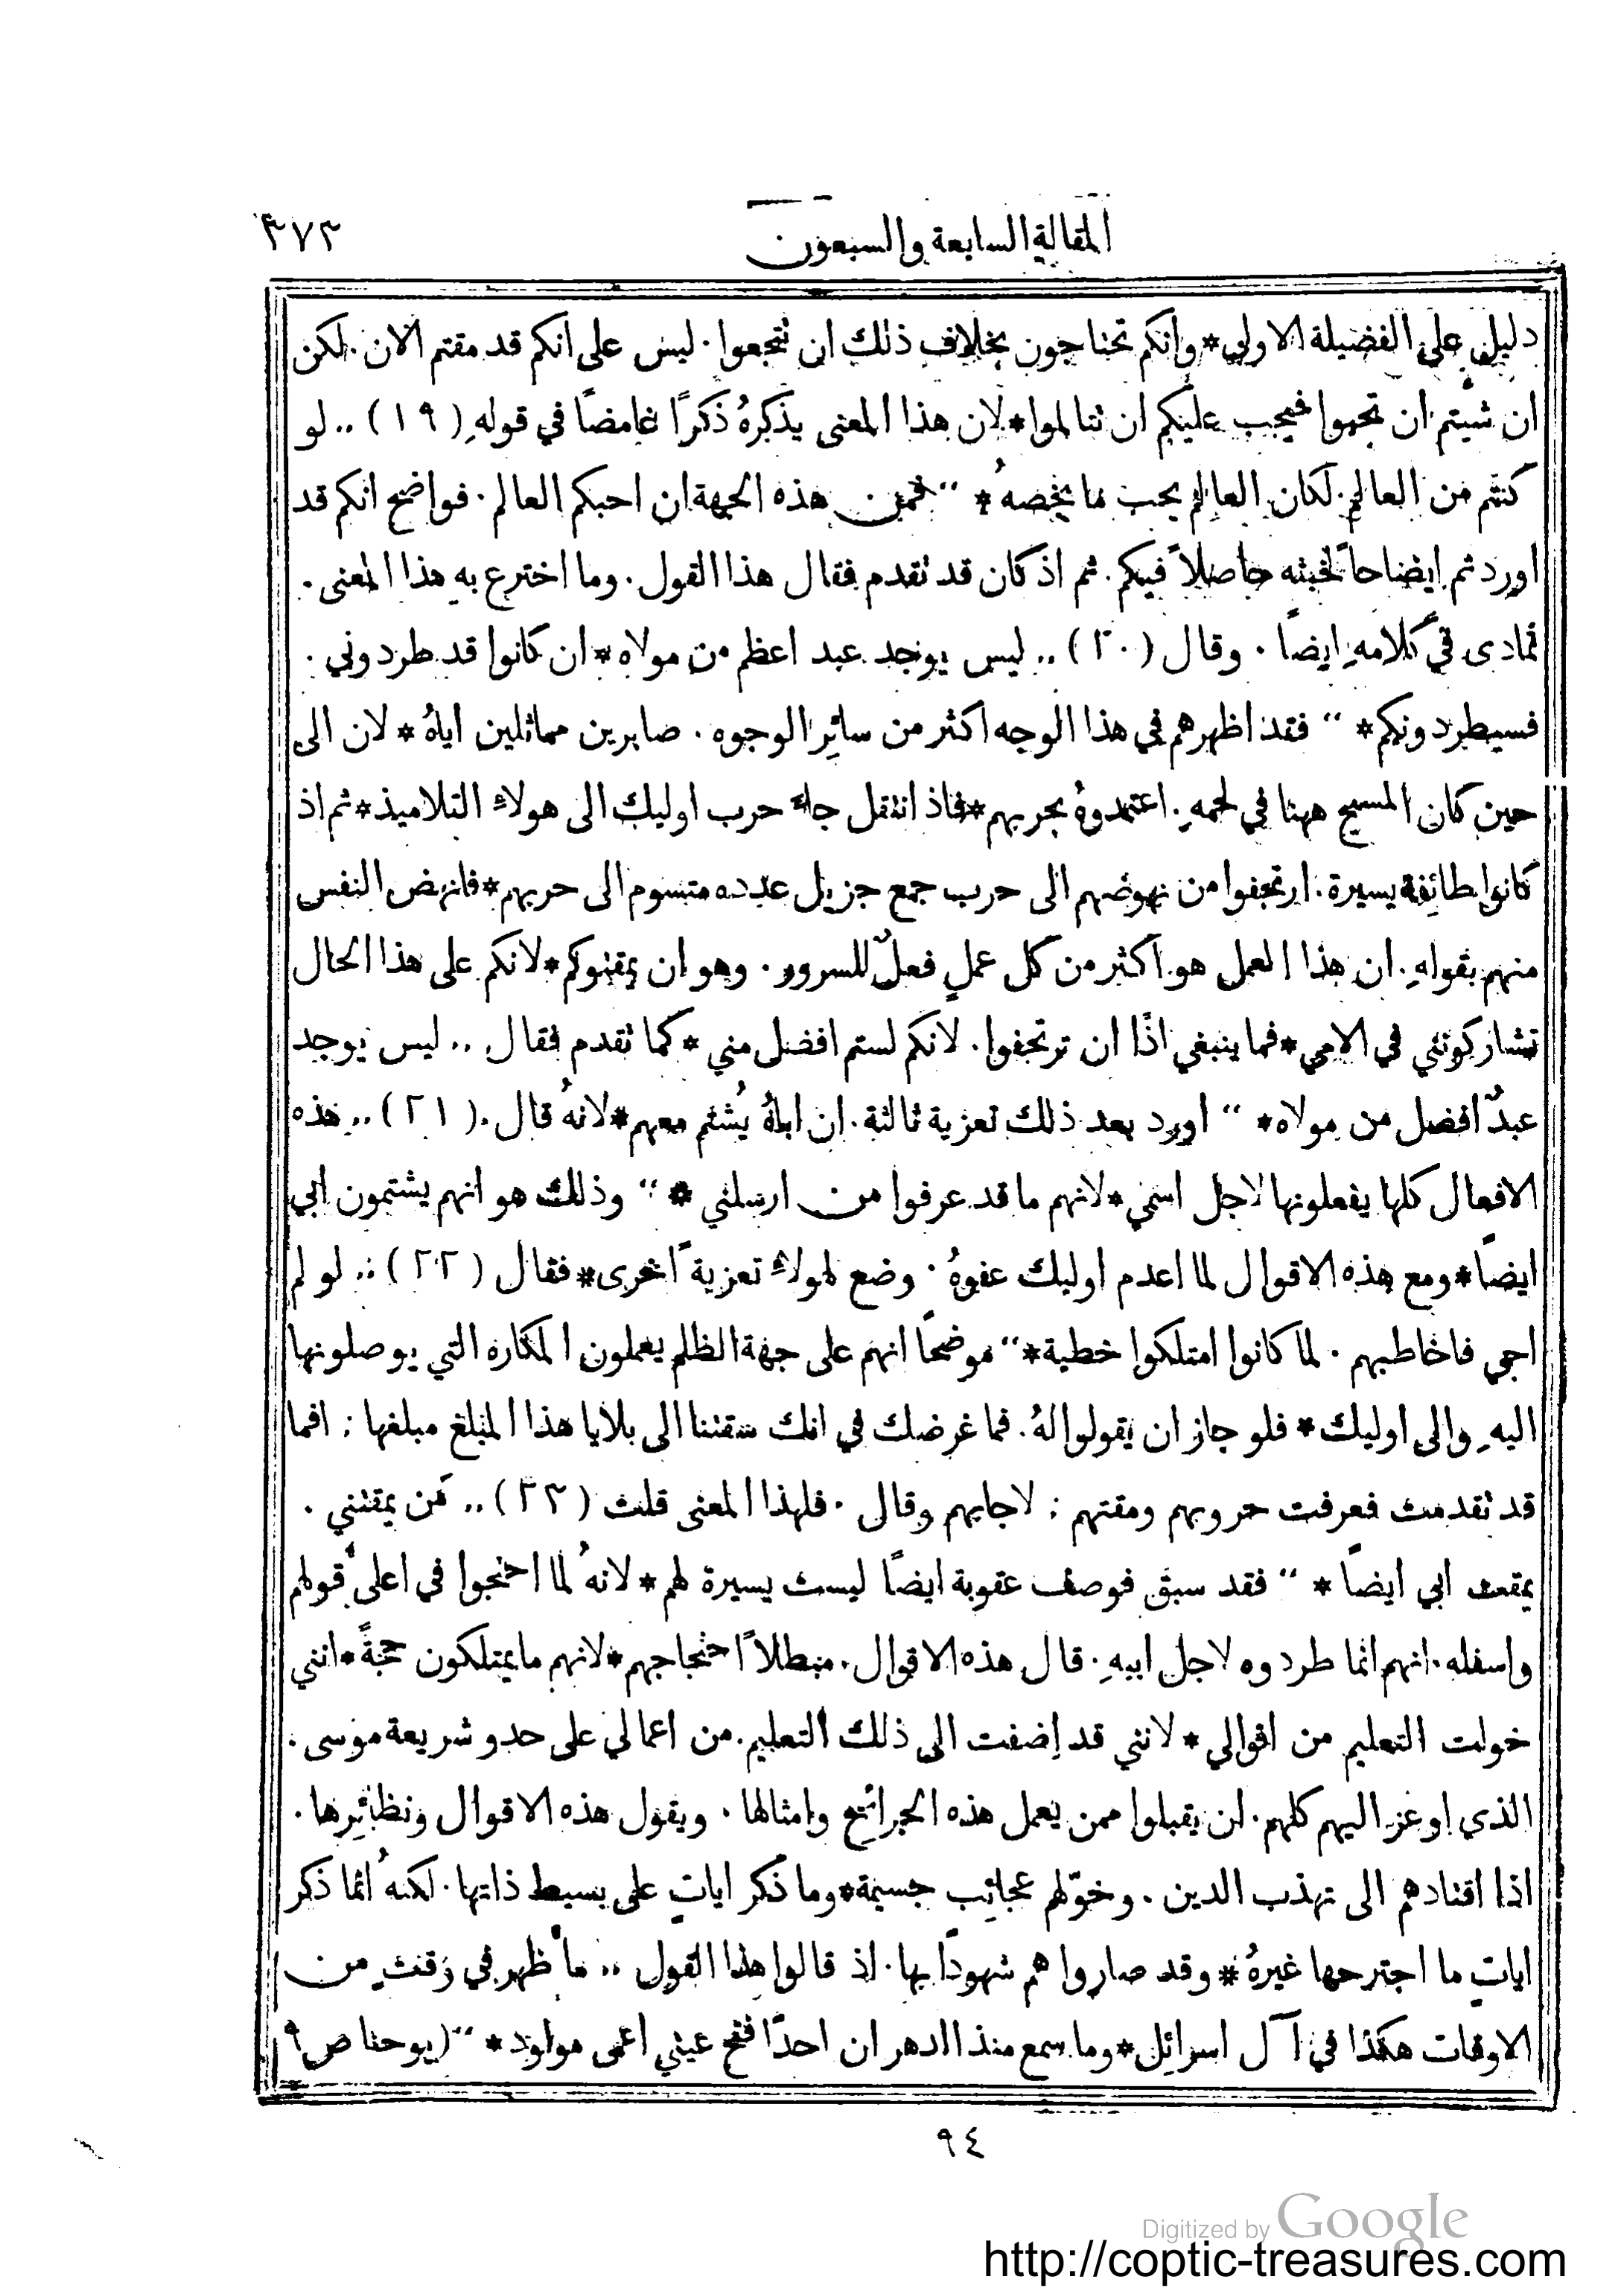 المقالة السابعة والسبعون
٣٧٣
دليل على الفضيلة الاولى * وانكم تحتاجون بخلاف ذلك ان تتجعوا . ليس على انكم قد مقتم الان . لكن
ان شيتم ان تحبوا فيجب عليكم ان تتالموا * لان هذا المعنى يذكرهُ ذكرًا غامضًا في قولهِ ( ١٩ ) .. لو
كنتم من العالم . لكان العالم يحب ما يخصهُ * “ فمن هذه الجهة ان احبكم العالم . فواضح انكم قد
اوردتم ايضاحاً لخبثه حاصلاً فيكم . ثم اذ كان قد تقدم فقال هذا القول . وما اخترع به هذا المعنى .
تمادى في كلامهِ ايضًا . وقال ( ٢٠ ) .. ليس يوجد عبد اعظم من مولاه * ان كانوا قد طردوني .
فسيطردونكم * “ فقد اظهرهم في هذا الوجه اكثر من سائر الوجوه . صابرين مماثلين اياهُ * لان الى
حين كان المسيح ههنا في لحمهِ . اعتمدوهُ بحربهم * فاذ انتقل جاء حرب اوليك الى هولاء التلاميذ * ثم اذ
كانوا طائفة يسيرة . ارتجفوا من نهوضهم الى حرب جمع جزيل عدده متسوم الى حربهم * فانهض النفس
منهم بقولهِ . ان هذا العمل هو اكثر من كل عمل فعلٌ للسرور . وهو ان يمقتوكم * لانكم على هذا الحال
تشاركونني في الامي * فما ينبغي اذًا ان ترتجفوا . لانكم لستم افضل مني * كما تقدم فقال .. ليس يوجد
عبدٌ افضل من مولاه * “ اورد بعد ذلك تعزية ثالثة . ان اباهُ يُشتم معهم * لانهُ قال . ( ٢١ ) .. هذه
الافعال كلها يفعلونها لاجل اسمي * لانهم ما قد عرفوا من ارسلني * “ وذلك هو انهم يشتمون ابي
ايضًا * ومع هذه الاقوال لما اعدم اوليك عفوهُ . وضع لهولاء تعزية اخرى * فقال ( ٢٢ ) .. لو لم
اجي فاخاطبهم . لما كانوا امتلكوا خطية * “ موضحًا انهم على جهة الظلم يعملون المكاره التي يوصلونها
اليهِ والى اوليك * فلو جاز ان يقولوا لهُ . فما غرضك في انك سقتنا الى بلايا هذا المبلغ مبلغها ; افما
قد تقدمت فعرفت حروبهم ومقتهم ; لاجابهم وقال . فلهذا المعنى قلت ( ٢٣ ) .. مَن يمقتني .
يمقت ابي ايضًا * “ فقد سبق فوصف عقوبة ايضًا ليست يسيرة لهم * لانهُ لما احتجوا في اعلى قولهم
واسفله . انهم انما طردوه لاجل ابيهِ . قال هذه الاقوال . مبطلاً احتجاجهم * لانهم ما يمتلكون حجةً * انني
خولت التعليم من اقوالي * لانني قد اضفت الى ذلك التعليم . من اعمالي على حدو شريعة موسى .
الذي اوعز اليهم كلهم . لن يقبلوا ممن يعمل هذه الجرائح وامثالها . ويقول هذه الاقوال ونظائرها .
اذا اقتادهم الى تهذب الدين . وخوّلهم عجائب جسيمة * وما ذكر ايات على بسيط ذاتها . لكنهُ انما ذكر
اياتٍ ما اجترحها غيرهُ * وقد صاروا هم شهودًا بها . اذ قالوا هذا القول .. ما ظهر في وقتٍ من
الاوقات هكذا في آل اسرائل * وما سمع منذ الدهر ان احدًا فتح عيني اعمى مولود * “ ( يوحنا ص ٩
٩٤
Digitized by Google
http://coptic-treasures.com